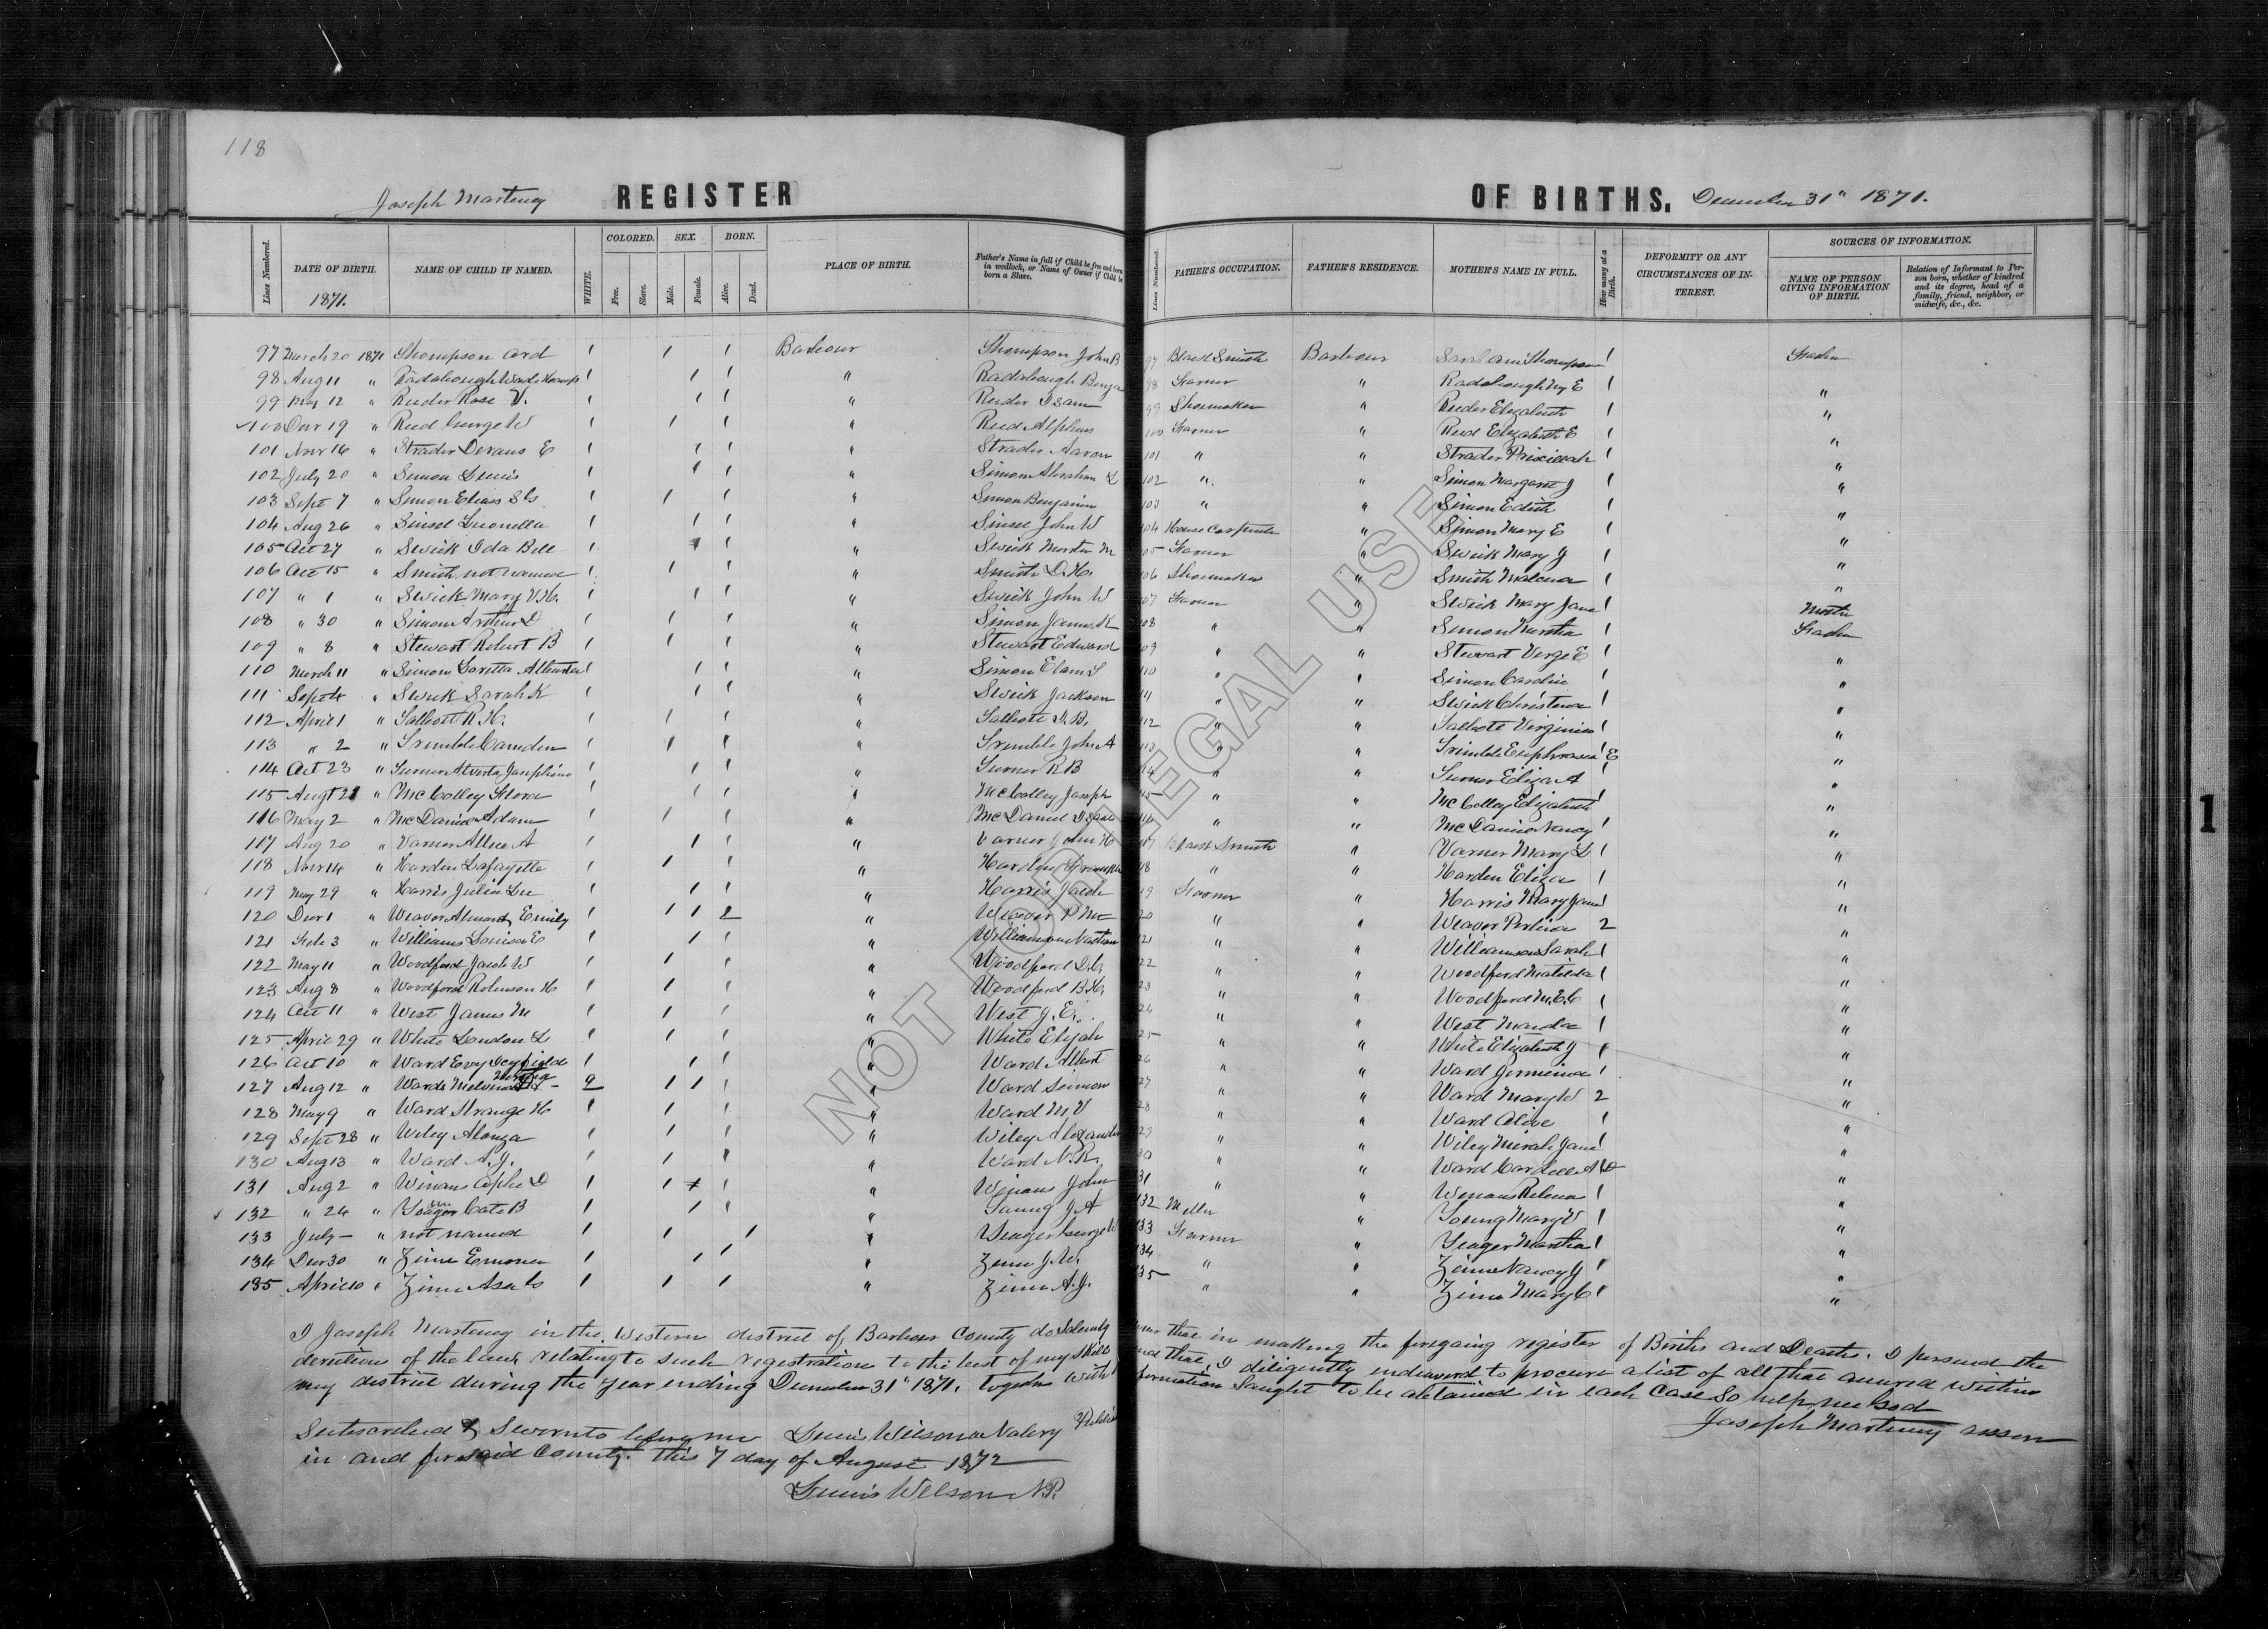 118
Joseph Marteney REGISTER OF BIRTHS. December 31" 1871.
Lines Numbered. DATE OF BIRTH. 1871. NAME OF CHILD IF NAMED. WHITE. COLORED. Free. Slave. SEX. Male. Female. BORN. Alive. Dead. PLACE OF BIRTH. Father's Name in full if Child be free and born in wedlock, or Name of Owner if Child be born a Slave. Lines Numbered. FATHER'S OCCUPATION. FATHER'S RESIDENCE. MOTHER'S NAME IN FULL. How many at a Birth. DEFORMITY OR ANY CIRCUMSTANCES OF INTEREST. SOURCES OF INFORMATION. NAME OF PERSON GIVING INFORMATION OF BIRTH. Relation of Informant to Person born, whether of kindred and its degree, head of a family, friend, neighbor, or midwife, &c., &c.
97 March 20 1871 Thompson Ord 1 1 1 Barbour Thompson John B 97 Black Smith Barbour Sarah Ann Thompson 1 Father
98 Aug 11 " Radabough 1 1 1 " Radabough Benja 98 Farmer " Radabough My E 1 "
99 May 12 " Reeder Rose V. 1 1 1 " Reeder Isam 99 Shoemaker " Reeder Elizabeth 1 "
100 Decr 19 " Reed George W 1 1 1 " Reed Alpheus 100 Farmer " Reed Elizabeth E 1 "
101 Novr 16 " Strader E 1 1 1 " Strader Aaron 101 " " Strader Priscillah 1 "
102 July 20 " Simon 1 1 1 " Simon Abraham L 102 " " Simon Margaret J 1 "
103 Sept 7 " Simon Elias 1 1 1 " Simon Benjamin 103 " " Simon Edith 1 "
104 Aug 26 " Sinsel Luonella 1 1 1 " Sinsel John W 104 House Carpenter " Simon Mary E 1 "
105 Oct 27 " Swick Ida Bell 1 1 1 " Swick Martin M 105 Farmer " Swick Mary J 1 "
106 Oct 15 " Smith not named 1 1 1 " Smith D. H. 106 Shoemaker " Smith 1 "
107 " 1 " Swick Mary V. H. 1 1 1 " Swick John W 107 Farmer " Swick Mary Jane 1 "
108 " 30 " Simon Arthur D 1 1 1 " Simon James K 108 " " Simon Martha 1 Mother
109 " 8 " Stewart Robert B 1 1 1 " Stewart Edward 109 " " Stewart Verge E 1 Father
110 March 11 " Simon Loretta 1 1 1 " Simon Elam S 110 " " Simon Caroline 1 "
111 Sept 4 " Swick Sarah K 1 1 1 " Swick Jackson 111 " " Swick Christena 1 "
112 April 1 " Talbott R. H. 1 1 1 " Talbott I. R. 112 " " Talbott Virginia 1 "
113 " 2 " Trimble Camden 1 1 1 " Trimble John A 113 " " Trimble Euphrasia E 1 "
114 Oct 23 " Turner Alverta Josephine 1 1 1 " Turner R B 114 " " Turner Eliza A 1 "
115 Augt 21 " McColley Flora 1 1 1 " McColley Joseph 115 " " McColley Elizabeth 1 "
116 May 2 " McDaniel Adam 1 1 1 " McDaniel 116 " " McDaniel Nancy 1 "
117 Aug 20 " Varner A 1 1 1 " Varner John H 117 Black Smith " Varner Mary L 1 "
118 Novr 14 " Harden Lafayette 1 1 1 " Harden Franklin 118 " " Harden Eliza 1 "
119 May 29 " Harris Julia Lee 1 1 1 " Harris Jacob 119 Farmer " Harris Mary Jane 1 "
120 Decr 1 " Weaver Emily 1 1 1 2 " Weaver P Mc 120 " " Weaver Perlina 2 "
121 Feb 3 " Williams Louisa E 1 1 1 " Williamson Nathan 121 " " Williamson Sarah 1 "
122 May 11 " Woodford Jacob W 1 1 1 " Woodford D.C. 122 " " Woodford Matilda 1 "
123 Aug 8 " Woodford Robinson H 1 1 1 " Woodford B. H. 123 " " Woodford M. E. C 1 "
124 Oct 11 " West James M 1 1 1 " West J. E. 124 " " West 1 "
125 April 29 " White London L 1 1 1 " White Elijah 125 " " White Elizabeth J 1 "
126 Oct 10 " Ward 1 1 1 " Ward Albert 126 " " Ward Jemima 1 "
127 Aug 12 " Ward Melvina 2 1 1 " Ward Simion 127 " " Ward Mary W 2 "
128 May 9 " Ward Strange H 1 1 1 " Ward M V 128 " " Ward Olive 1 "
129 Sept 28 " Wiley Alonza 1 1 1 " Wiley Alexander 129 " " Wiley Mirah Jane 1 "
130 Aug 13 " Ward A. J. 1 1 1 " Ward N. R. 130 " " Ward 1 "
131 Aug 2 " Winans D 1 1 1 " Winans John 131 " " Winans Relena 1 "
132 " 24 " Young Cate B 1 1 1 " Young J A 132 Miller " Young Mary V 1 "
133 July — " not named 1 1 1 " Yeager George W 133 Farmer " Yeager Martha 1 "
134 Decr 30 " Zinn 1 1 1 " Zinn J. W. 134 " " Zinn Nancy J 1 "
135 April 10 " Zinn Asa 1 1 1 " Zinn A. J. 135 " " Zinn Mary C 1 "
I Joseph Marteney in the Western district of Barbour County do Solemly swear that in making the foregoing register of Births and Deaths. I persued the
derections of the laws relating to such registration to the best of my Skill and that, I diligently endeavord to procure a list of all that occured within
my district during the year ending December 31" 1871. together with information Saught to be obtained in each Case So help me God
Joseph Marteney assor
Subscribed & Sworn to before me Lewis Wilson a Notary Public
in and for said County. this 7 day of August 1872
Lewis Wilson N.P.
NOT FOR LEGAL USE
1